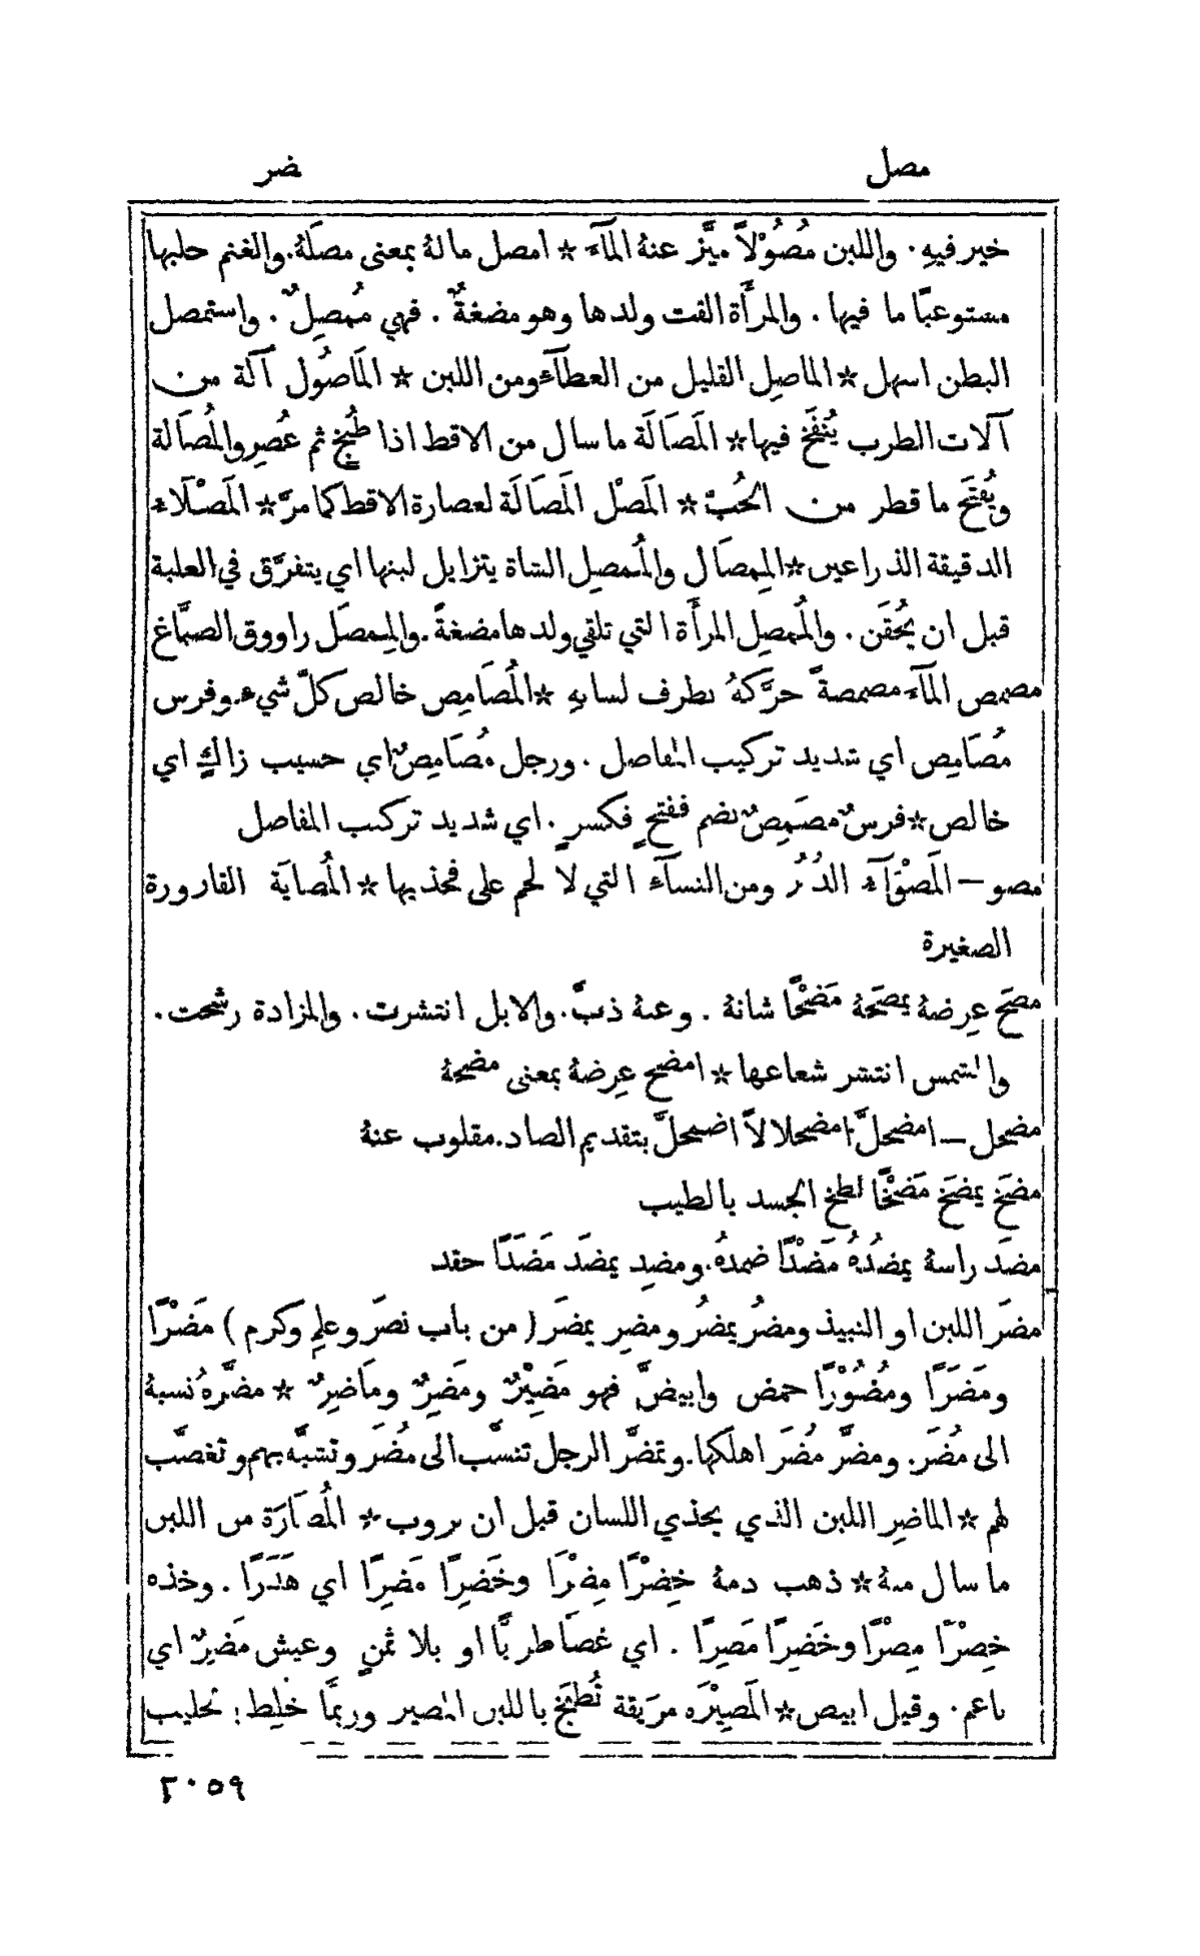 مصل
ضر
خير فيهِ. واللبن مُصُوْلاً ميَّز عنهُ المآءَ * امصل مالهُ بمعنى مصلَهُ. والغنم حلبها
مستوعبًا ما فيها. والمرأَة القت ولدها وهو مضغةٌ. فهي مُمصِلٌ. واستمصل
البطن اسهل * الماصِل القليل من العطآءِ ومن اللبن * المَاصُول آلة من
آلات الطرب يُنفَخ فيها * المَصَالَة ما سال من الاقط اذا طُبِخ ثم عُصِر والمُصَالة
ويُفتَح ما قطر من الحُبّ * المَصْل المَصَالَة لعصارة الاقط كما مرَّ * المَصْلَاء
الدقيقة الذراعين * المِمصَال والمُمصِل الشاة يتزايل لبنها اي يتفرَّق في العلبة
قبل ان يُحقَن. والمُمصِل المرأَة التي تلقي ولدها مضغةً. والمِمصَل راووق الصبَّاغ
مصمص المآءَ مصمصةً حرَّكهُ بطرف لسانهِ * المُصَامِص خالص كلّ شيء. وفرس
مُصَامِص اي شديد تركيب المفاصل. ورجل مُصَامِصٌ اي حسيب زاكٍ اي
خالص * فرسٌ مصَمِصٌ بضم ففتحٍ فكسرٍ. اي شديد تركيب المفاصل
مصو — المَصْوَآء الدُبُر ومن النسآءِ التي لا لحم على فخذيها * المُصايَة القارورة
الصغيرة
مضَح عِرضهُ يمضَحهُ مَضْحًا شانهُ. وعنهُ ذبَّ. والابل انتشرت. والمزادة رشحت.
والشمس انتشر شعاعها * امضح عِرضهُ بمعنى مضحهُ
مضحل — امضحلَّ امضحلالاً اضمحلَّ بتقديم الضاد. مقلوب عنهُ
مضَخ يمضَخ مَضْخًا لطخ الجسد بالطيب
مضَد راسهُ يمضُدُهُ مَضْدًا ضمدهُ. ومضِد يمضَد مَضَدًا حقد
مضَر اللبن او النبيذ ومضُر يمضُر ومضِر يمضَر (من باب نصَر وعلِم وكرم) مَضْرًا
ومَضَرًا ومُضُوْرًا حمض وابيضَّ فهو مَضِيْرٌ ومَضِرٌ ومَاضِرٌ * مضَّرهُ نسبهُ
الى مُضَر. ومضَّر مُضَر اهلكها. وتمضَّر الرجل تنسَّب الى مُضَر وتشبَّه بهم وتعصَّب
لهم * الماضِر اللبن الذي يحذي اللسان قبل ان يروب * المُضَارَة من اللبن
ما سال منهُ * ذهب دمهُ خِضْرًا مِضْرًا وخَضِرًا مَضِرًا اي هَدَرًا. وخذه
خِضْرًا مِضْرًا وخَضِرًا مَضِرًا. اي غضًّا طريًّا او بلا ثمنٍ وعيش مَضِرٌ اي
ناعم. وقيل ابيض * المَضِيْرَه مرَيقة تُطبَخ باللبن المضير وربمَّا خُلِط بحليب
٢٠٥٩